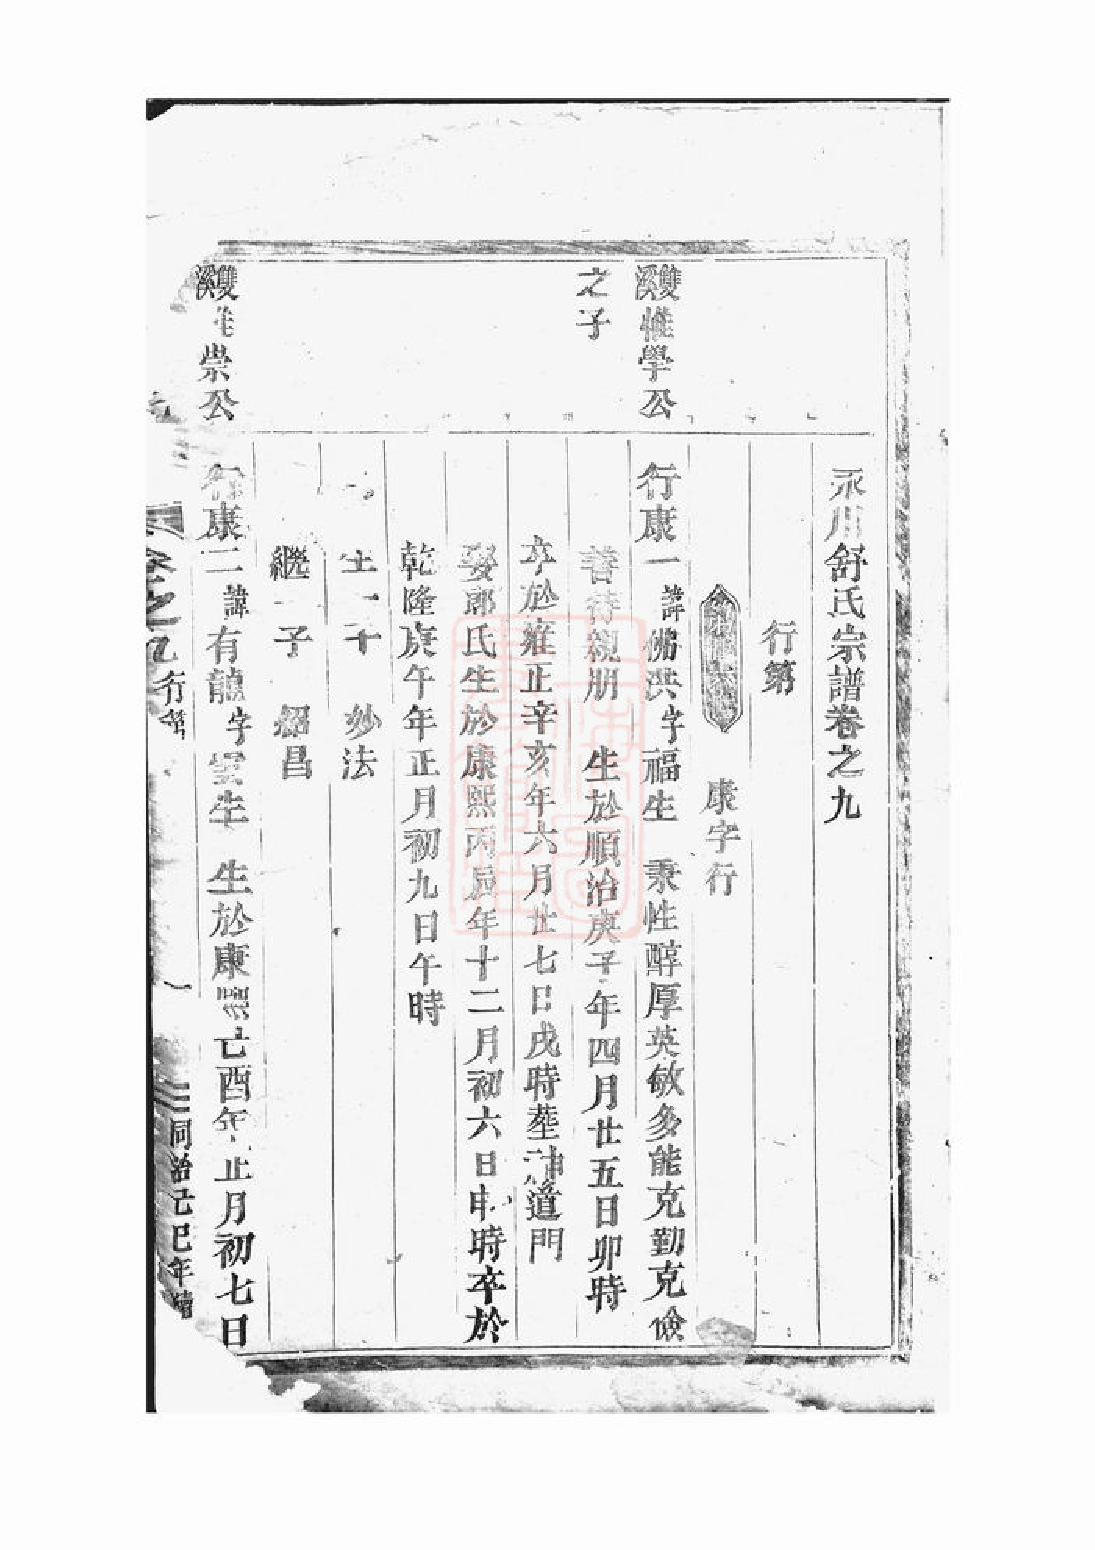 永川舒氏宗譜卷之九
行第
康字行
雙溪惟學公
之子
行康一諱佛洪字福生 秉性醇厚英敏多能克勤克儉
善待親朋 生於順治庚子年四月廿五日卯時
卒於雍正辛亥年六月廿七日戌時塟神道門
娶郭氏生於康熙丙辰年十二月初六日申時卒於
乾隆庚午年正月初九日午時
生一子 妙法
繼子 紹昌
雙溪惟崇公
行康二諱有龍字雲生 生於康熙己酉年正月初七日
卷之九 行第 一 同治己巳年續